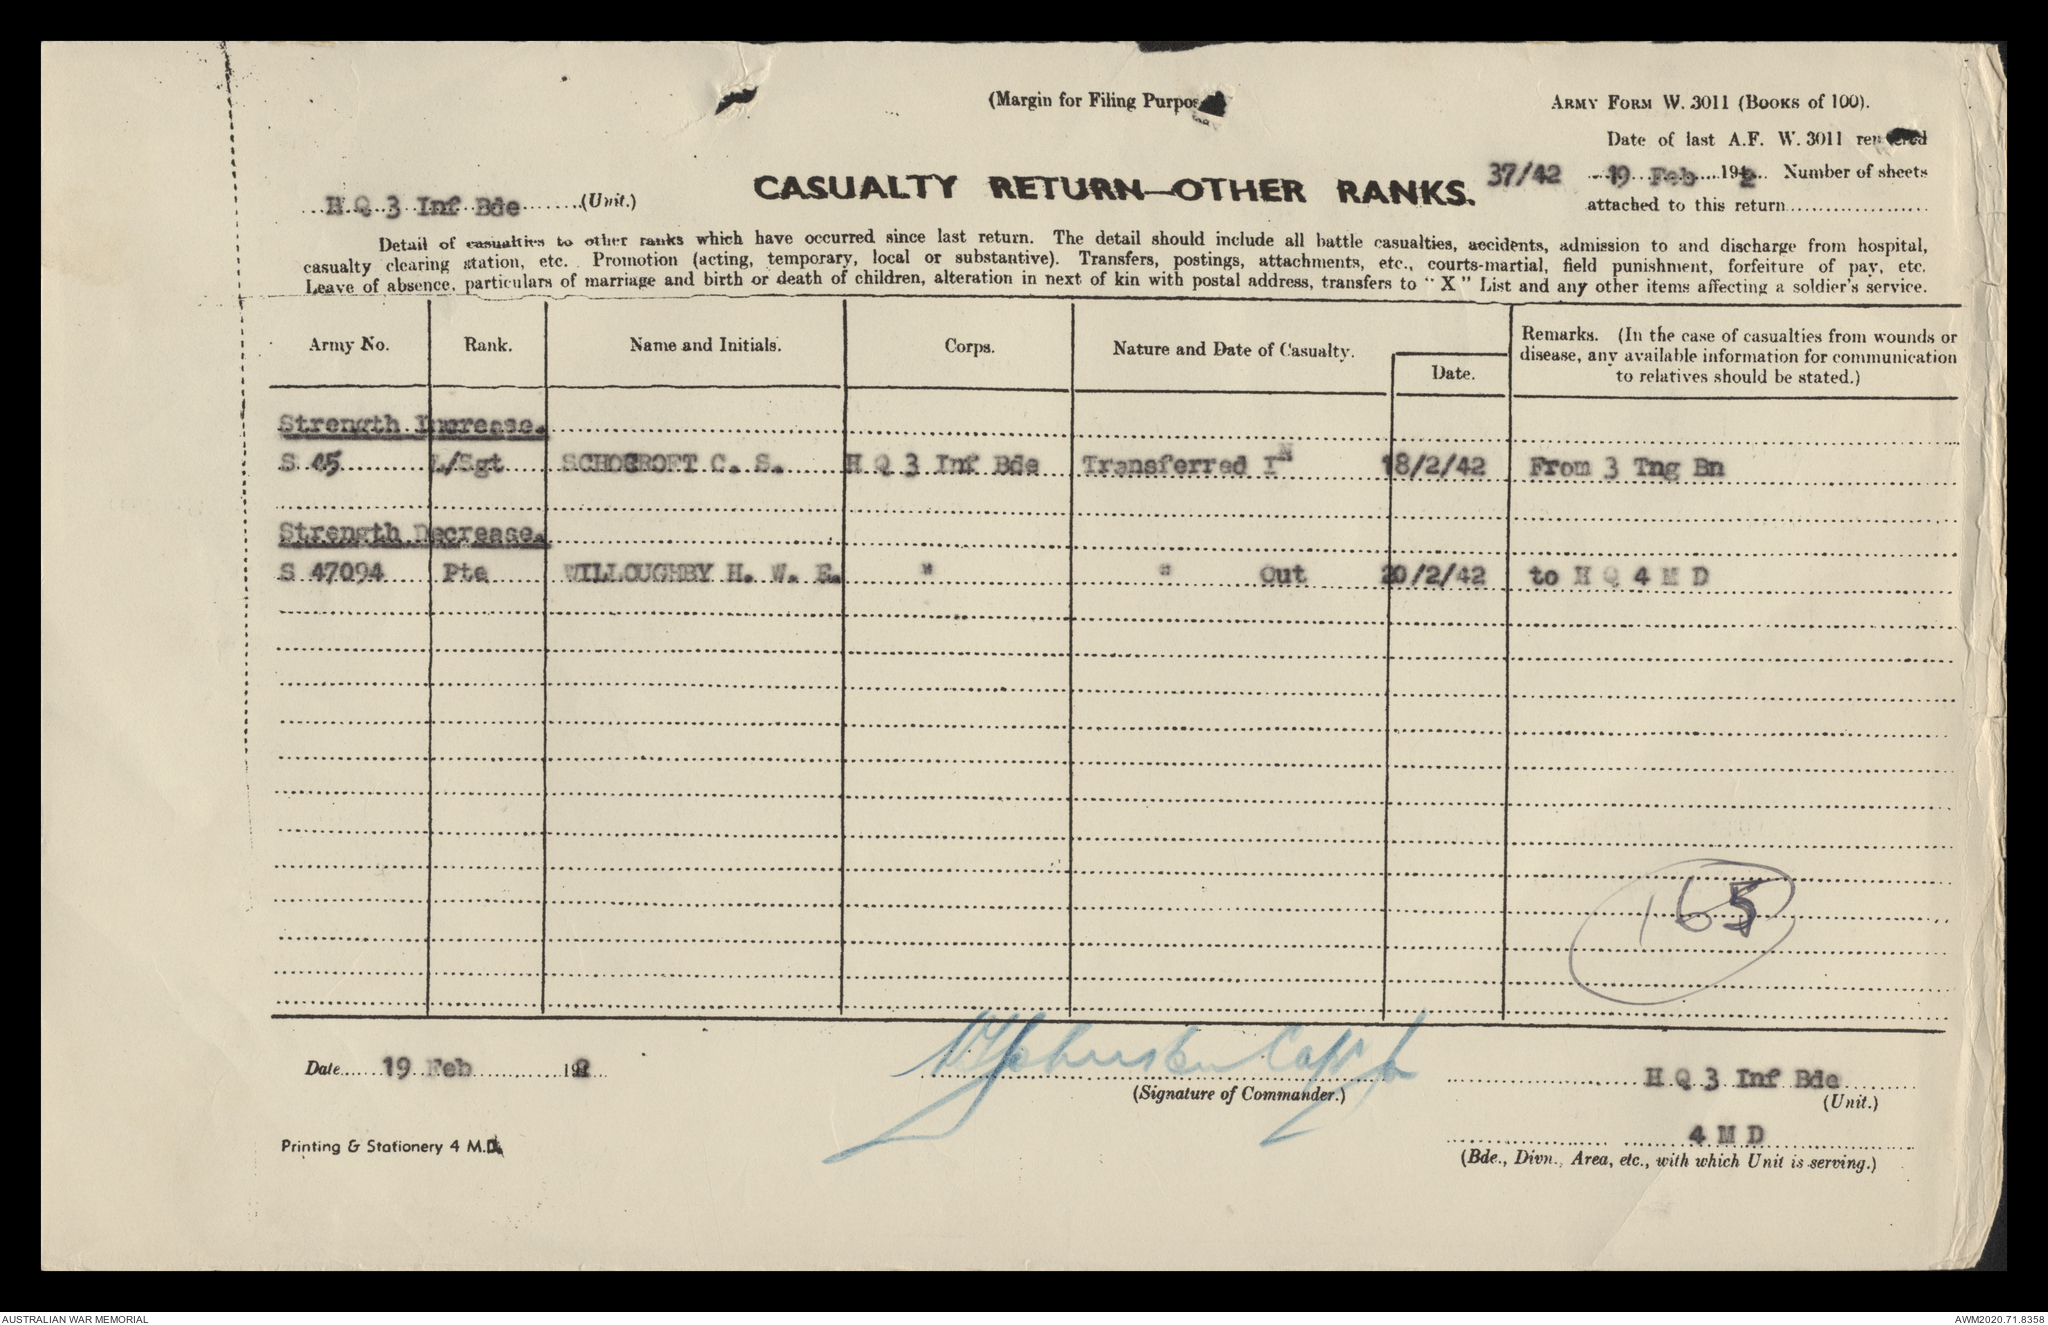 (Margin for Filing Purpos
ARMY FORM W. 3011 (BOOKS of 100).
Date of last A.F. W. 3011 rendered
H Q 3 Inf Bde (Unit.)
CASUALTY RETURN—OTHER RANKS.
37/42 19 Feb 1942 Number of sheets
attached to this return
Detail of casualties to other ranks which have occurred since last return. The detail should include all battle casualties, accidents, admission to and discharge from hospital,
casualty clearing station, etc. Promotion (acting, temporary, local or substantive). Transfers, postings, attachments, etc., courts-martial, field punishment, forfeiture of pay, etc.
Leave of absence, particulars of marriage and birth or death of children, alteration in next of kin with postal address, transfers to "X" List and any other items affecting a soldier's service.
Army No. Rank. Name and Initials. Corps. Nature and Date of Casualty. Date. Remarks. (In the case of casualties from wounds or
disease, any available information for communication
to relatives should be stated.)
Strength Increase.
S 45 L/Sgt SCHOCROFT C. S. H Q 3 Inf Bde Transferred IN 18/2/42 From 3 Tng Bn
Strength Decrease.
S 47094 Pte WILLOUGHBY H. W. E. " " Out 20/2/42 to H Q 4 M D
165
Date 19 Feb 192
Capt
(Signature of Commander.)
H Q 3 Inf Bde
(Unit.)
4 M D
(Bde., Divn., Area, etc., with which Unit is serving.)
Printing & Stationery 4 M.D.
AUSTRALIAN WAR MEMORIAL
AWM2020.71.8358